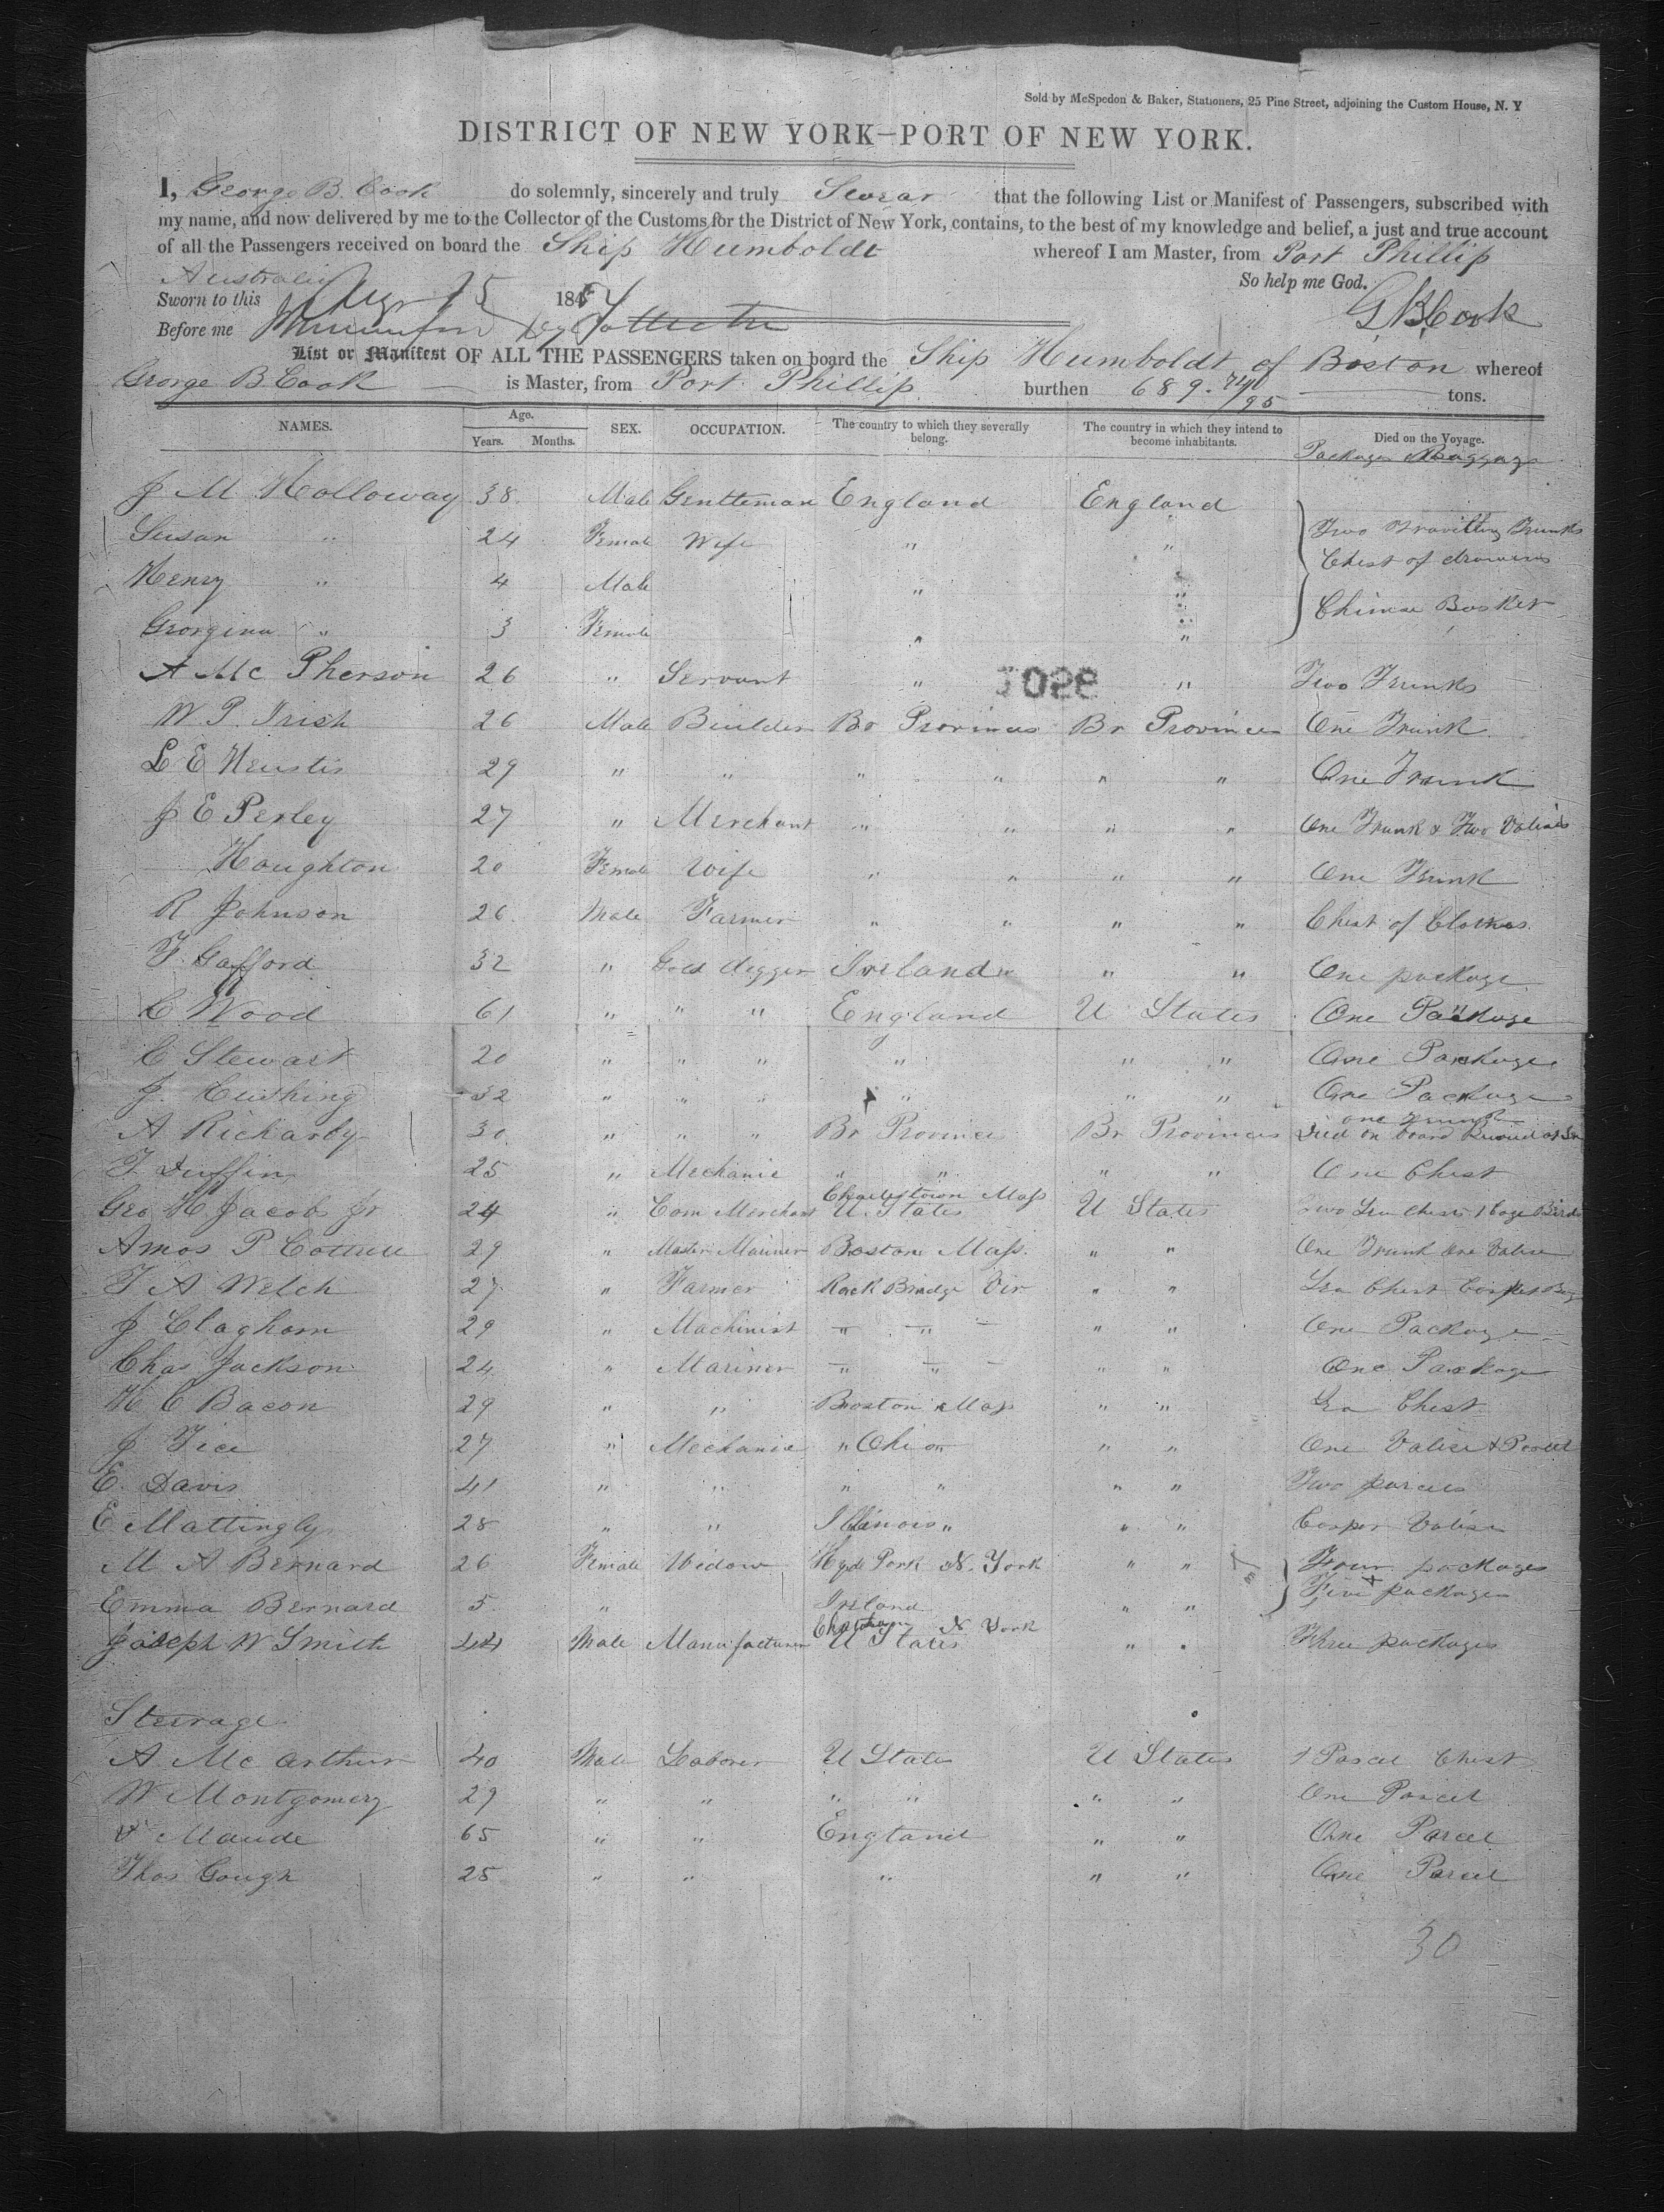 Sold by McSpedon & Baker, Stationers, 25 Pine Street, adjoining the Custom House, N. Y
DISTRICT OF NEW YORK—PORT OF NEW YORK.
I, George B. Cook do solemnly, sincerely and truly Swear that the following List or Manifest of Passengers, subscribed with
my name, and now delivered by me to the Collector of the Customs for the District of New York, contains, to the best of my knowledge and belief, a just and true account
of all the Passengers received on board the Ship Humboldt whereof I am Master, from Port Phillip
Australia So help me God.
Sworn to this Aug 15 1854 G B Cook
Before me Dep Collector
List or Manifest OF ALL THE PASSENGERS taken on board the Ship Humboldt of Boston whereof
George B Cook is Master, from Port Phillip burthen 689. 74/95 tons.
NAMES. Age. Years. Months. SEX. OCCUPATION. The country to which they severally belong. The country in which they intend to become inhabitants. Died on the Voyage.
Packages Baggage
J M Holloway 38 Male Gentleman England England
Susan " 24 Female Wife " " Two Travilling Trunks
Henry " 4 Male " " Chest of drawers
Georgina " 3 Female " " Chinese Basket
A Mc Pherson 26 " Servant " " Two Trunks
W. P. Irish 26 Male Builder Br Provinces Br Provinces One Trunk
L E Heustis 29 " " " " " " One Trunk
J E Perley 27 " Merchant " " " " One Trunk & Two Valises
Houghton 20 Female Wife " " " " One Trunk
R Johnson 26 Male Farmer " " " " Chest of Clothes
F. Gafford 32 " Gold digger Ireland " " One package
C Wood 61 " " " England U States One Package
C Stewart 20 " " " " " " One Package
J. Cushing 32 " " " " " " One Package
one trunk
A Richarby 30 " " " Br Provinces Br Provinces Died on board
T. Duffin 25 " Mechanic " " " " One Chest
Charlestown Mass
Geo H Jacobs Jr 24 " Com Merchant U States U States Two Sea Chests 1 Cage Birds
Amos P Cottrell 29 " Master Mariner Boston Mass. " " One Trunk One Valise
T A Welch 27 " Farmer Rock Bridge Vir " " Sea Chest Carpet Bag
J Claghorn 29 " Machinist " " " One Package
Chas Jackson 24 " Mariner " " " One Package
H C Bacon 29 " " Boston Mass " " Sea Chest
J Tice 27 " Mechanic " Ohio " " One Valise & Parcel
E. Davis 41 " " " " " " Two parcels
E Mattingly 28 " " Illinois " " " Carpet Valise
M A Bernard 26 Female Widow Hyde Park N. York " " Four packages
Emma Bernard 5 " Ireland " " Five packages
Chatham N York
Joseph W Smith 44 Male Manufacturer U States " " Three packages
Steerage
A. Mc Arthur 40 Male Laborer U States U States 1 Parcel Chest
W Montgomery 29 " " " " " " One Parcel
Maude 65 " " England " " One Parcel
Thos Gough 25 " " " " " One Parcel
30